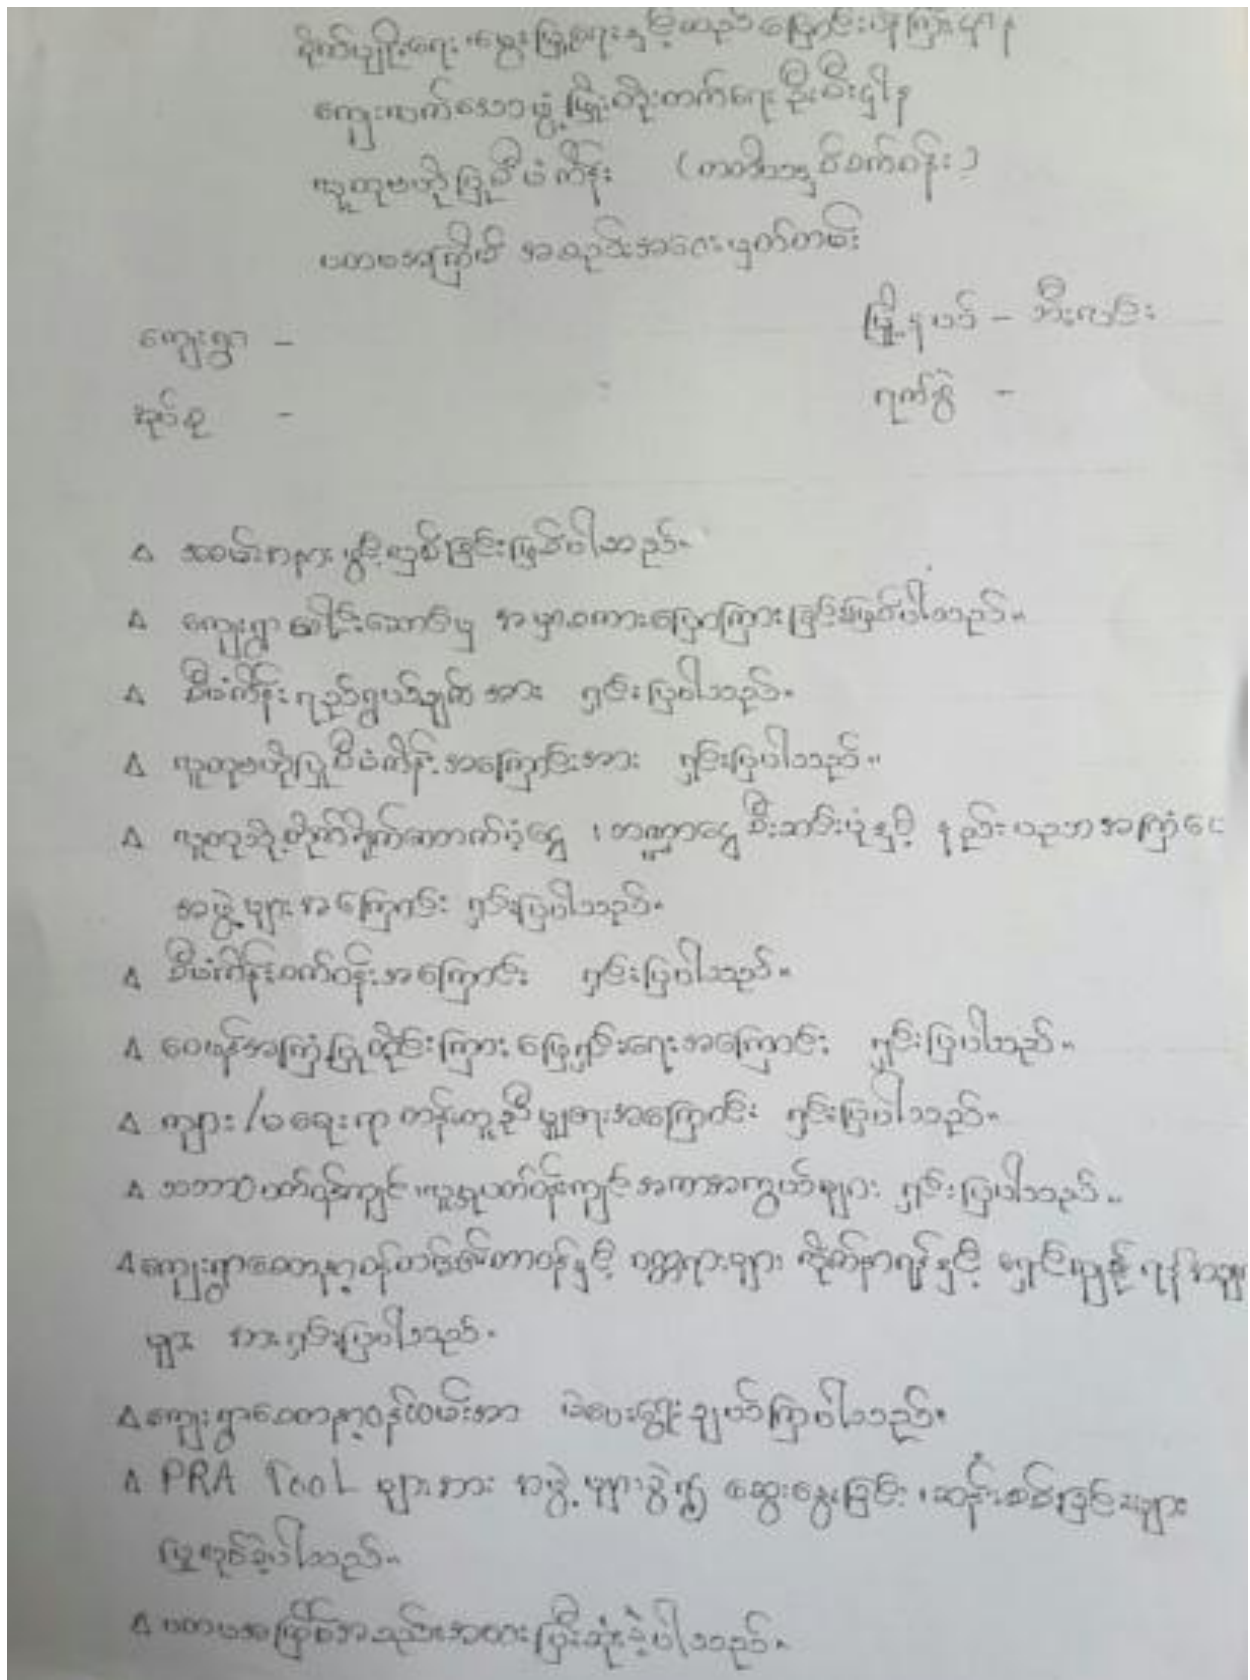 စိုက်ပျိုးရေး၊ မွေးမြူရေးနှင့်ဆည်မြောင်းဝန်ကြီးဌာန
ကျေးလက်ဒေသဖွံ့ဖြိုးတိုးတက်ရေးဦးစီးဌာန
လူထုဗဟိုပြုစီမံကိန်း
ပထမအကြိမ် အစည်းအဝေးမှတ်တမ်း
ကျေးရွာ - မြို့နယ် - ဘီးလင်း
အုပ်စု - ရက်စွဲ -
အခမ်းအနားဖွင့်လှစ်ခြင်းဖြစ်ပါသည်။
ကျေးရွာခေါင်းဆောင်မှ အမှာစကားပြောကြားခြင်းဖြစ်ပါသည်။
စီမံကိန်းရည်ရွယ်ချက်အား ရှင်းပြပါသည်။
လူထုဗဟိုပြုစီမံကိန်းအကြောင်းအား ရှင်းပြပါသည်။
လူထုသို့တိုက်ရိုက်ထောက်ပံ့ငွေ ၊ ဘဏ္ဍာငွေစီးဆင်းပုံနှင့် နည်းပညာအကြံပေး
အဖွဲ့များအကြောင်း ရှင်းပြပါသည်။
စီမံကိန်းစက်ဝန်းအကြောင်း ရှင်းပြပါသည်။
ဝေဖန်အကြံပြုတိုင်ကြား ဖြေရှင်းရေးအကြောင်း ရှင်းပြပါသည်။
ကျား/မရေးရာ တန်းတူညီမျှရေးအကြောင်း ရှင်းပြပါသည်။
သဘာဝပတ်ဝန်းကျင် ၊ လူမှုပတ်ဝန်းကျင် အကာအကွယ်များ ရှင်းပြပါသည်။
ကျေးရွာစေတနာ့ဝန်ထမ်းတာဝန်နှင့် ဝတ္တရားများ လိုက်နာရန်နှင့် ရှောင်ကြဉ်ရန်အချက်
များ အားရှင်းပြပါသည်။
ကျေးရွာစေတနာ့ဝန်ထမ်းအား မဲပေးရွေးချယ်ကြပါသည်။
PRA Tool များအား အဖွဲ့များခွဲ၍ ဆွေးနွေးခြင်း ၊ ဆန်းစစ်ခြင်းများ
ပြုလုပ်ခဲ့ပါသည်။
ပထမအကြိမ်အစည်းအဝေးပြီးဆုံးခဲ့ပါသည်။